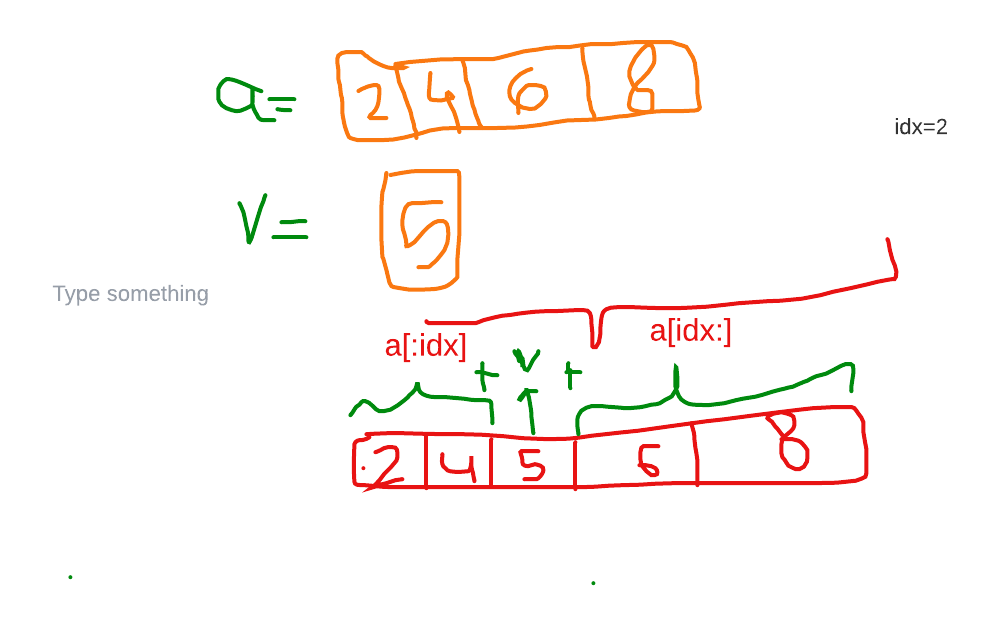 a= 2 4 6 8
idx=2
V= 5
Type something
a[:idx] a[idx:]
+ v +
2 4 5 6 8